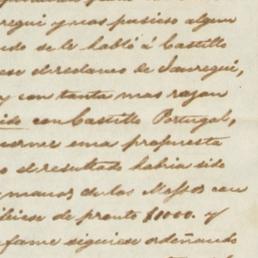 regui y nos pusiese algun
se le habló á Castillo
ese el reclamo de Jauregui,
y con tanta mas razon
ido con Castillo Portugal,
una propuesta
o el resultado habria sido
manos de los Messrs con
de pronto $1000. y
fame siguiese ordeñando